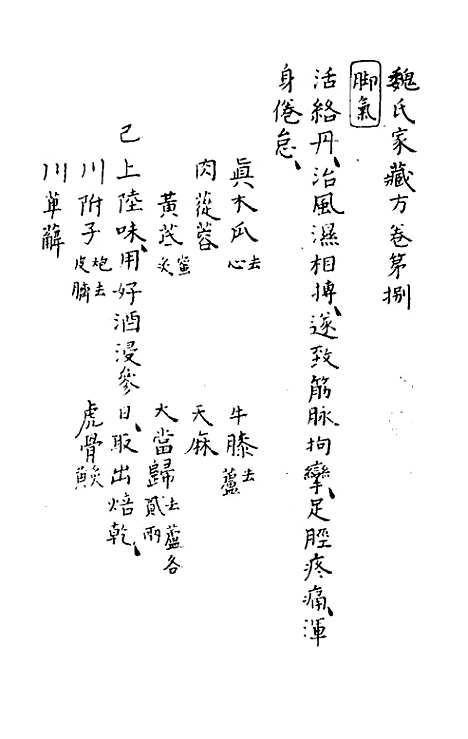 魏氏家藏方卷第捌
脚氣
活絡丹、治風濕相搏、遂致筋脉拘攣、足脛疼痛、渾
身倦怠、
眞木瓜去心 牛膝去蘆
肉蓯蓉 天麻
黃芪蜜炙 大當歸去蘆各貳兩
已上陸味、用好酒浸參日、取出焙乾、
川附子炮去皮臍 虎骨
川萆薢